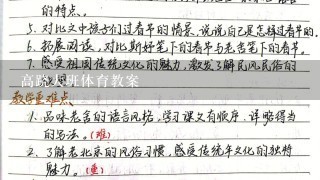 的特点。
5. 对比文中孩子们过春节的情景，说说自己是怎样过春节的。
6. 拓展阅读，对比斯好笔下的春节与老舍笔下的春节。
7. 感受祖国传统文化的魅力，激发了解民风民俗的
高跷大班体育教案
教学重难点
1. 品味老舍的语言风格，学习课文有顺序、详略得当
的写法。（难）
2. 了解老北京的风俗习惯，感受传统年文化的独特
魅力。（重）